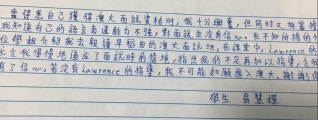 當得悉自己獲得澳大面試資格時,我十分興奮,但同時又相當擔
我知道自己的語言表達能力不強,對面試並沒有信心。在不知所措的
位學姐介紹我去報讀早稻田的澳大面試班,在課堂中,Lawrence的
完全我慢慢地適應了面試時的情境,指出我的不足再加以指導,令我
有了信心。若沒有Lawrence的指導,我不可能如願進入澳大,謝謝你
學生